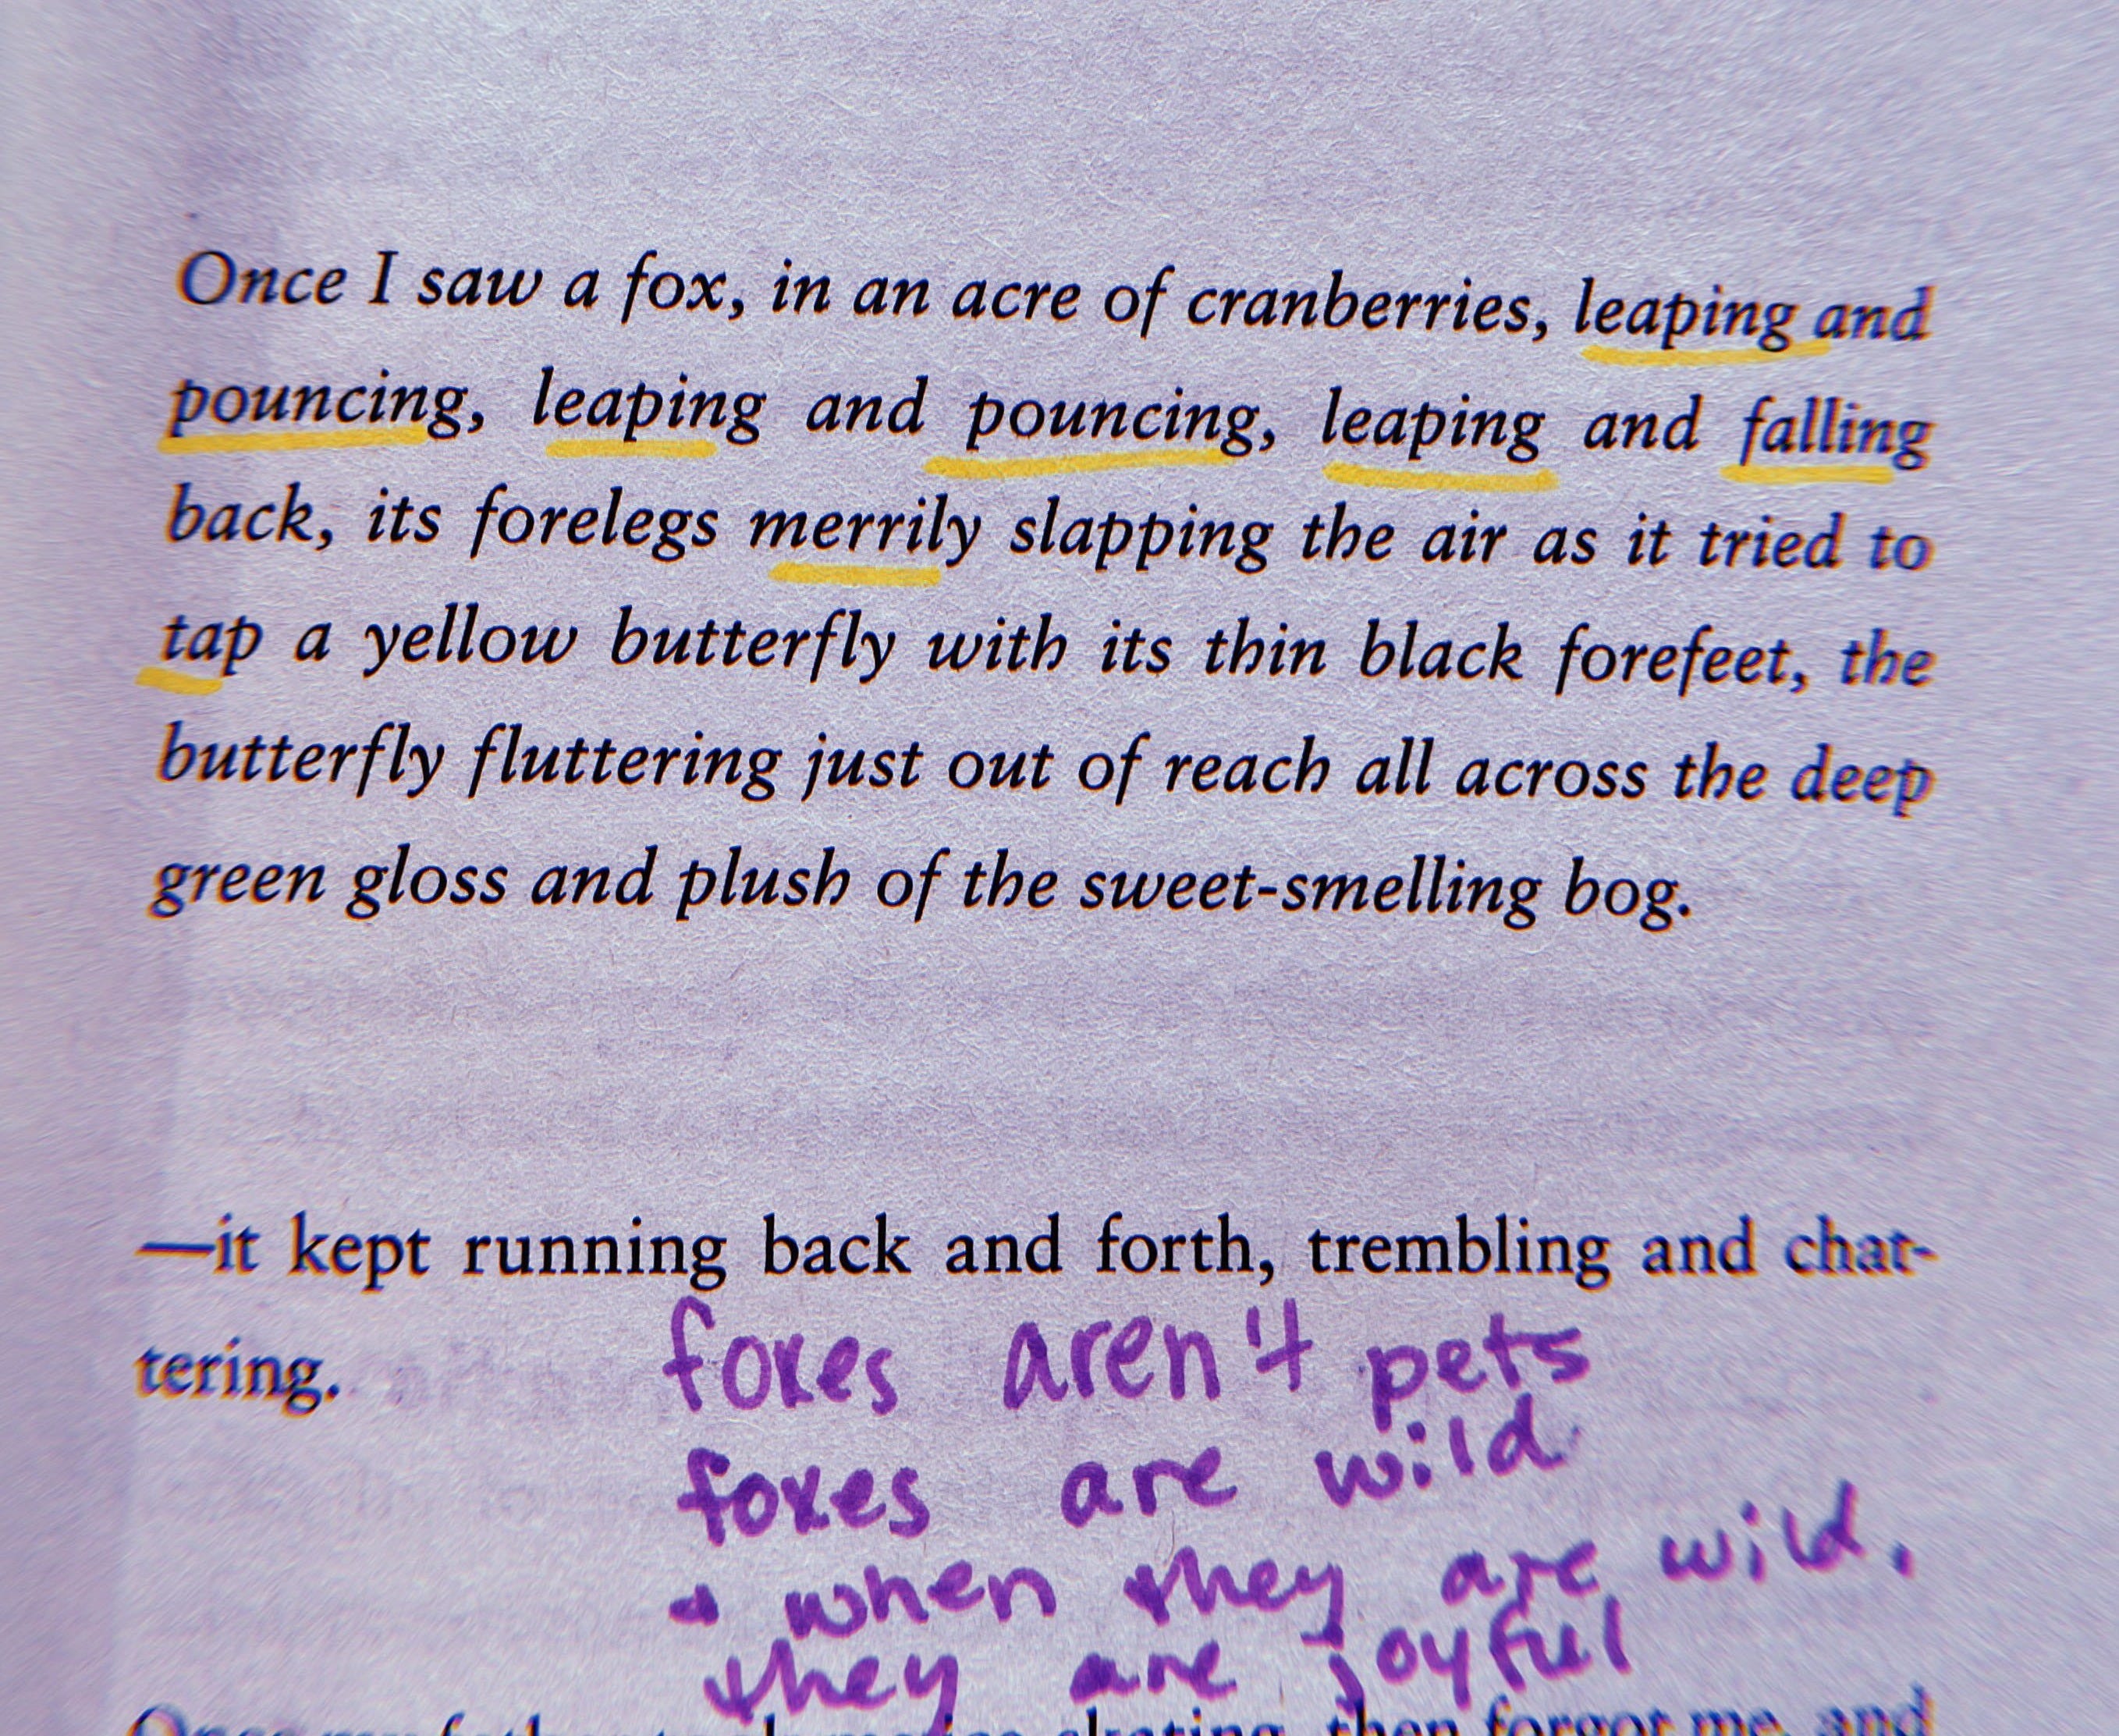 Once I saw a fox, in an acre of cranberries, leaping and
pouncing, leaping and pouncing, leaping and falling
back, its forelegs merrily slapping the air as it tried to
tap a yellow butterfly with its thin black forefeet, the
butterfly fluttering just out of reach all across the deep
green gloss and plush of the sweet-smelling bog.
—it kept running back and forth, trembling and chat-
tering.
foxes aren't pets
foxes are wild
+ when they are wild,
they are joyful
Once my father took me ice skating, then forgot me, and